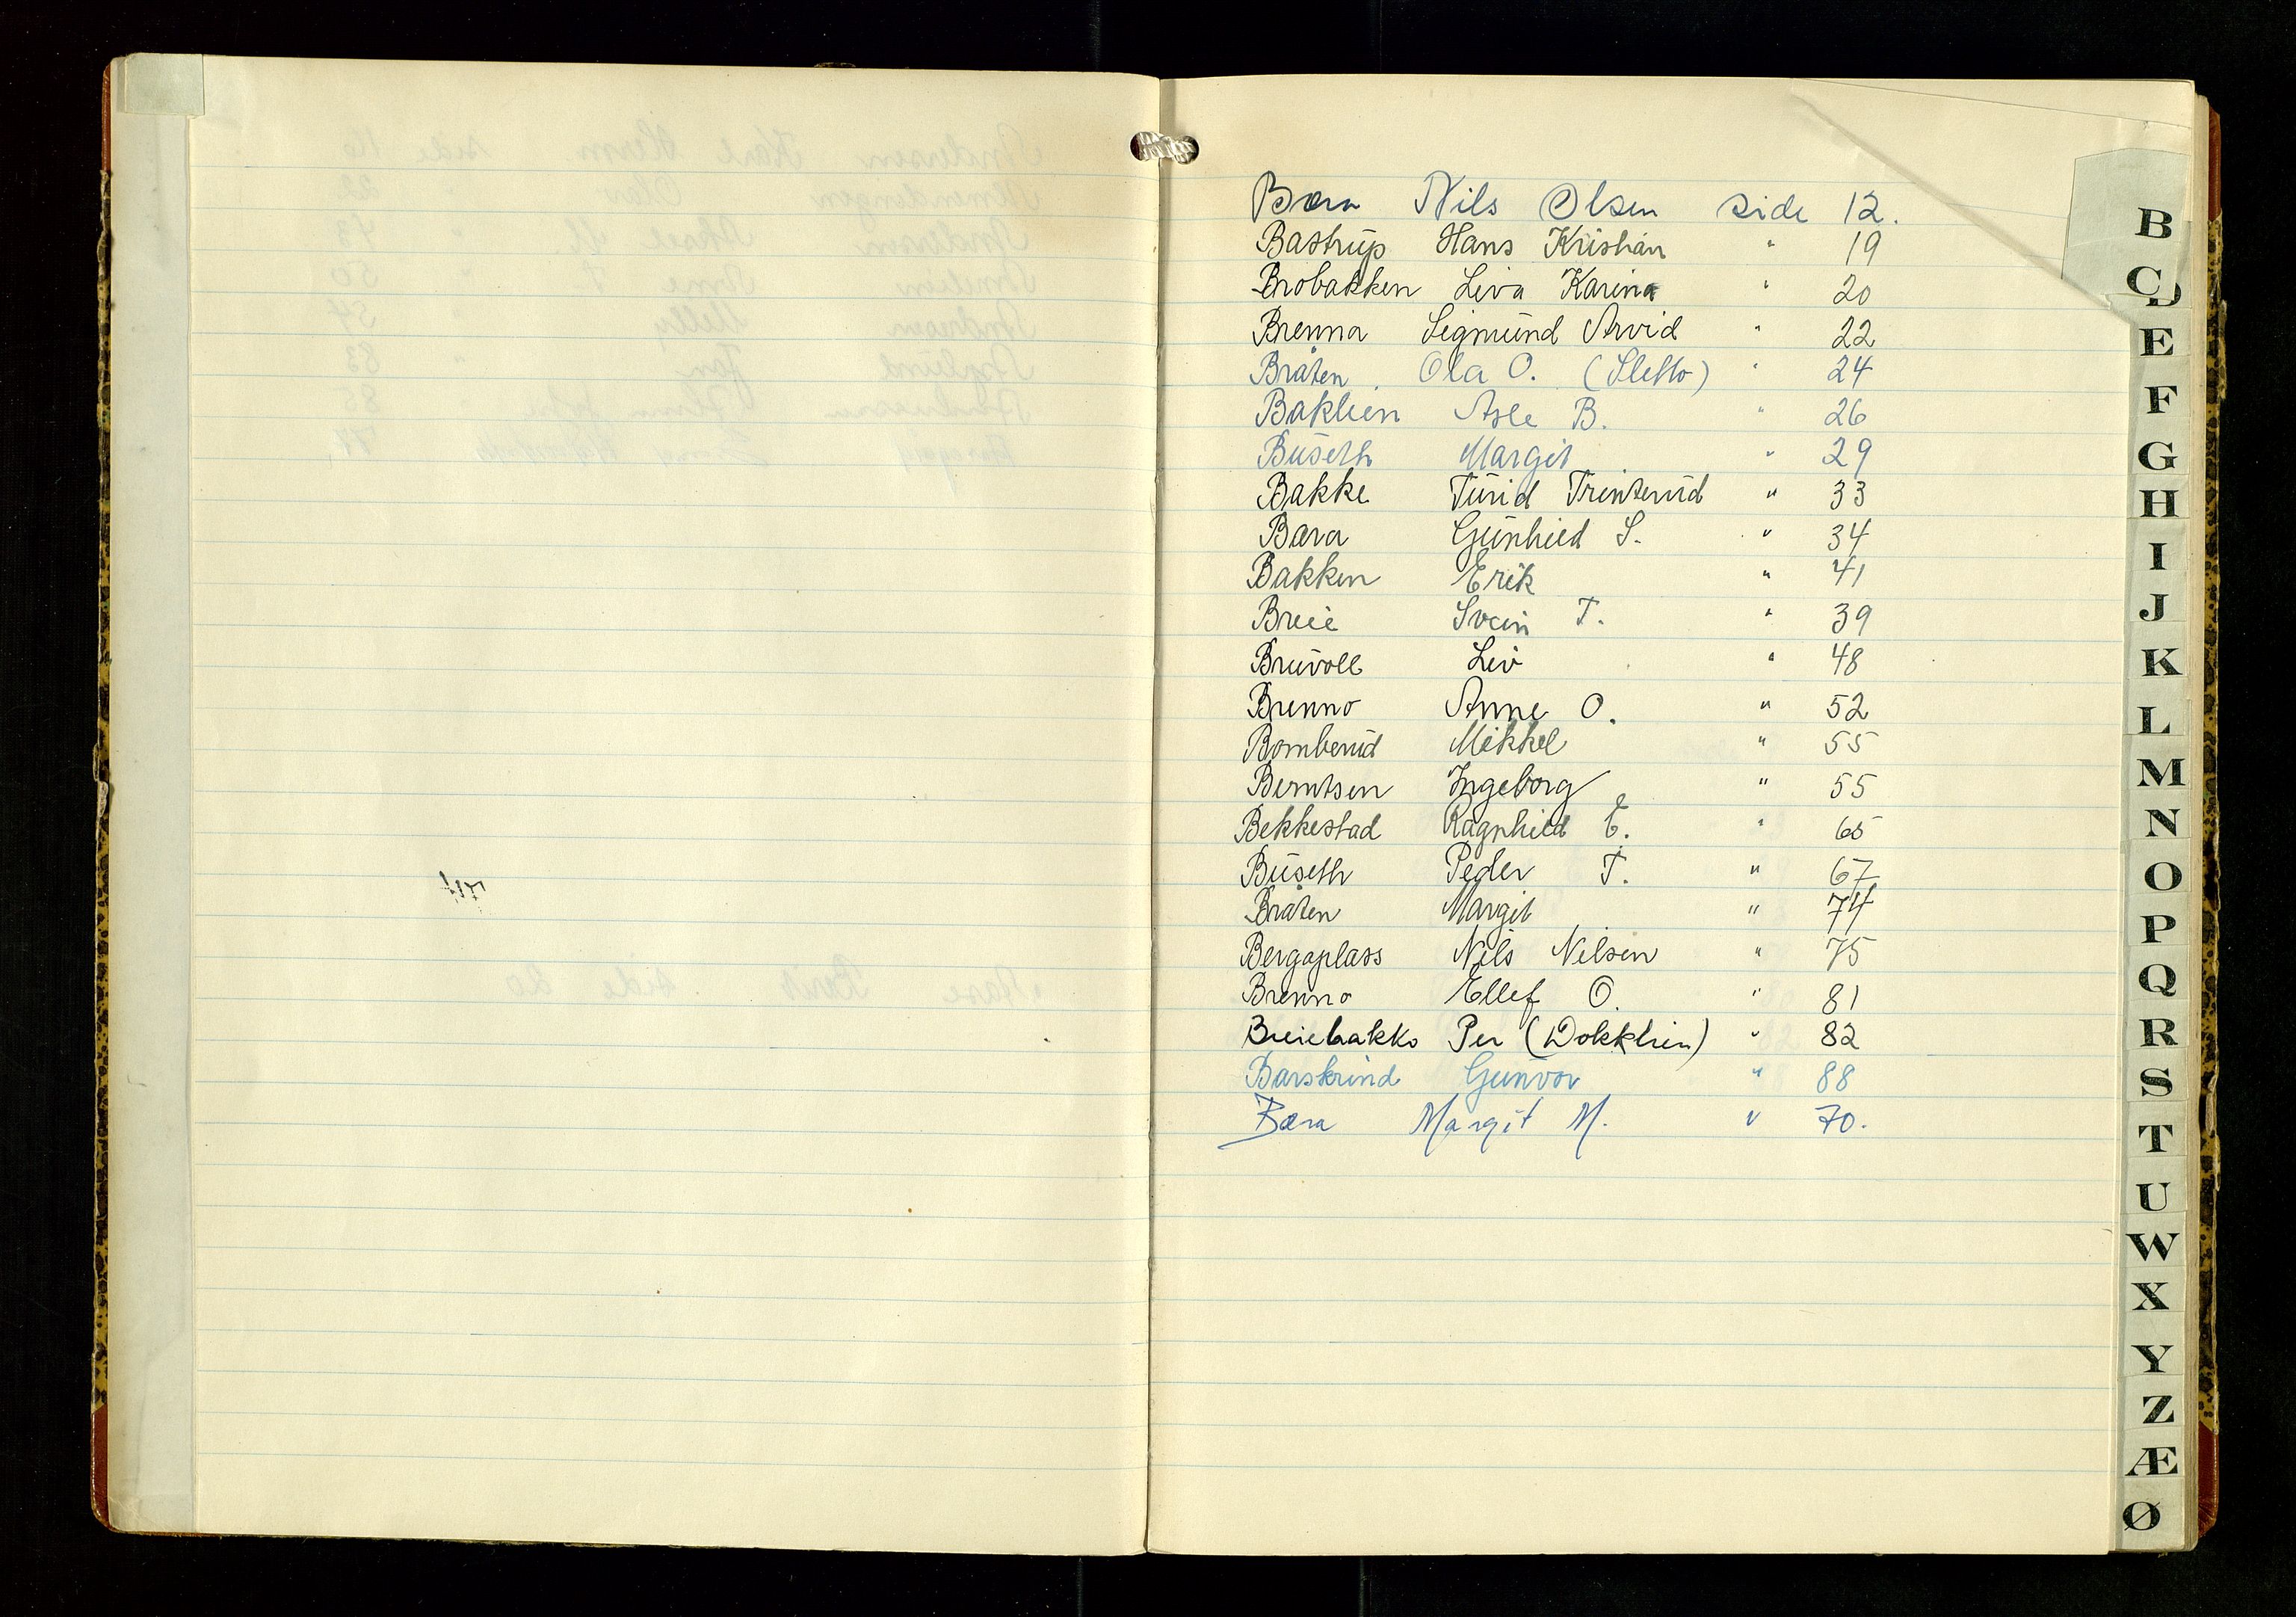 Bæra Nils Olsen side 12.
Bastrup Hans Kristian " 19
Brobakken Liva Karina " 20
Brenna Sigmund Arvid " 22
Bråten Ola O. (Sletto) " 24
Baklien Asle B. " 26
Buseth Margit " 29
Bakke Turid Trinterud " 33
Bæra Gunhild S. " 34
Bakken Erik " 41
Breie Svein T. " 39
Bruvoll Liv " 48
Brenno Anne O. " 52
Bomberud Mikkel " 55
Berntsen Ingeborg " 55
Bekkestad Ragnhild E. " 65
Buseth Peder T. " 67
Bråten Margit " 74
Bergaplass Nils Nilsen " 75
Brenno Ellef O. " 81
Breiebakko Per (Dokklien) " 82
Barskrind Gunvor " 88
Bæra Margit M. " 70.
B
C
D
E
F
G
H
I
J
K
L
M
N
O
P
Q
R
S
T
U
W
X
Y
Z
Æ
Ø